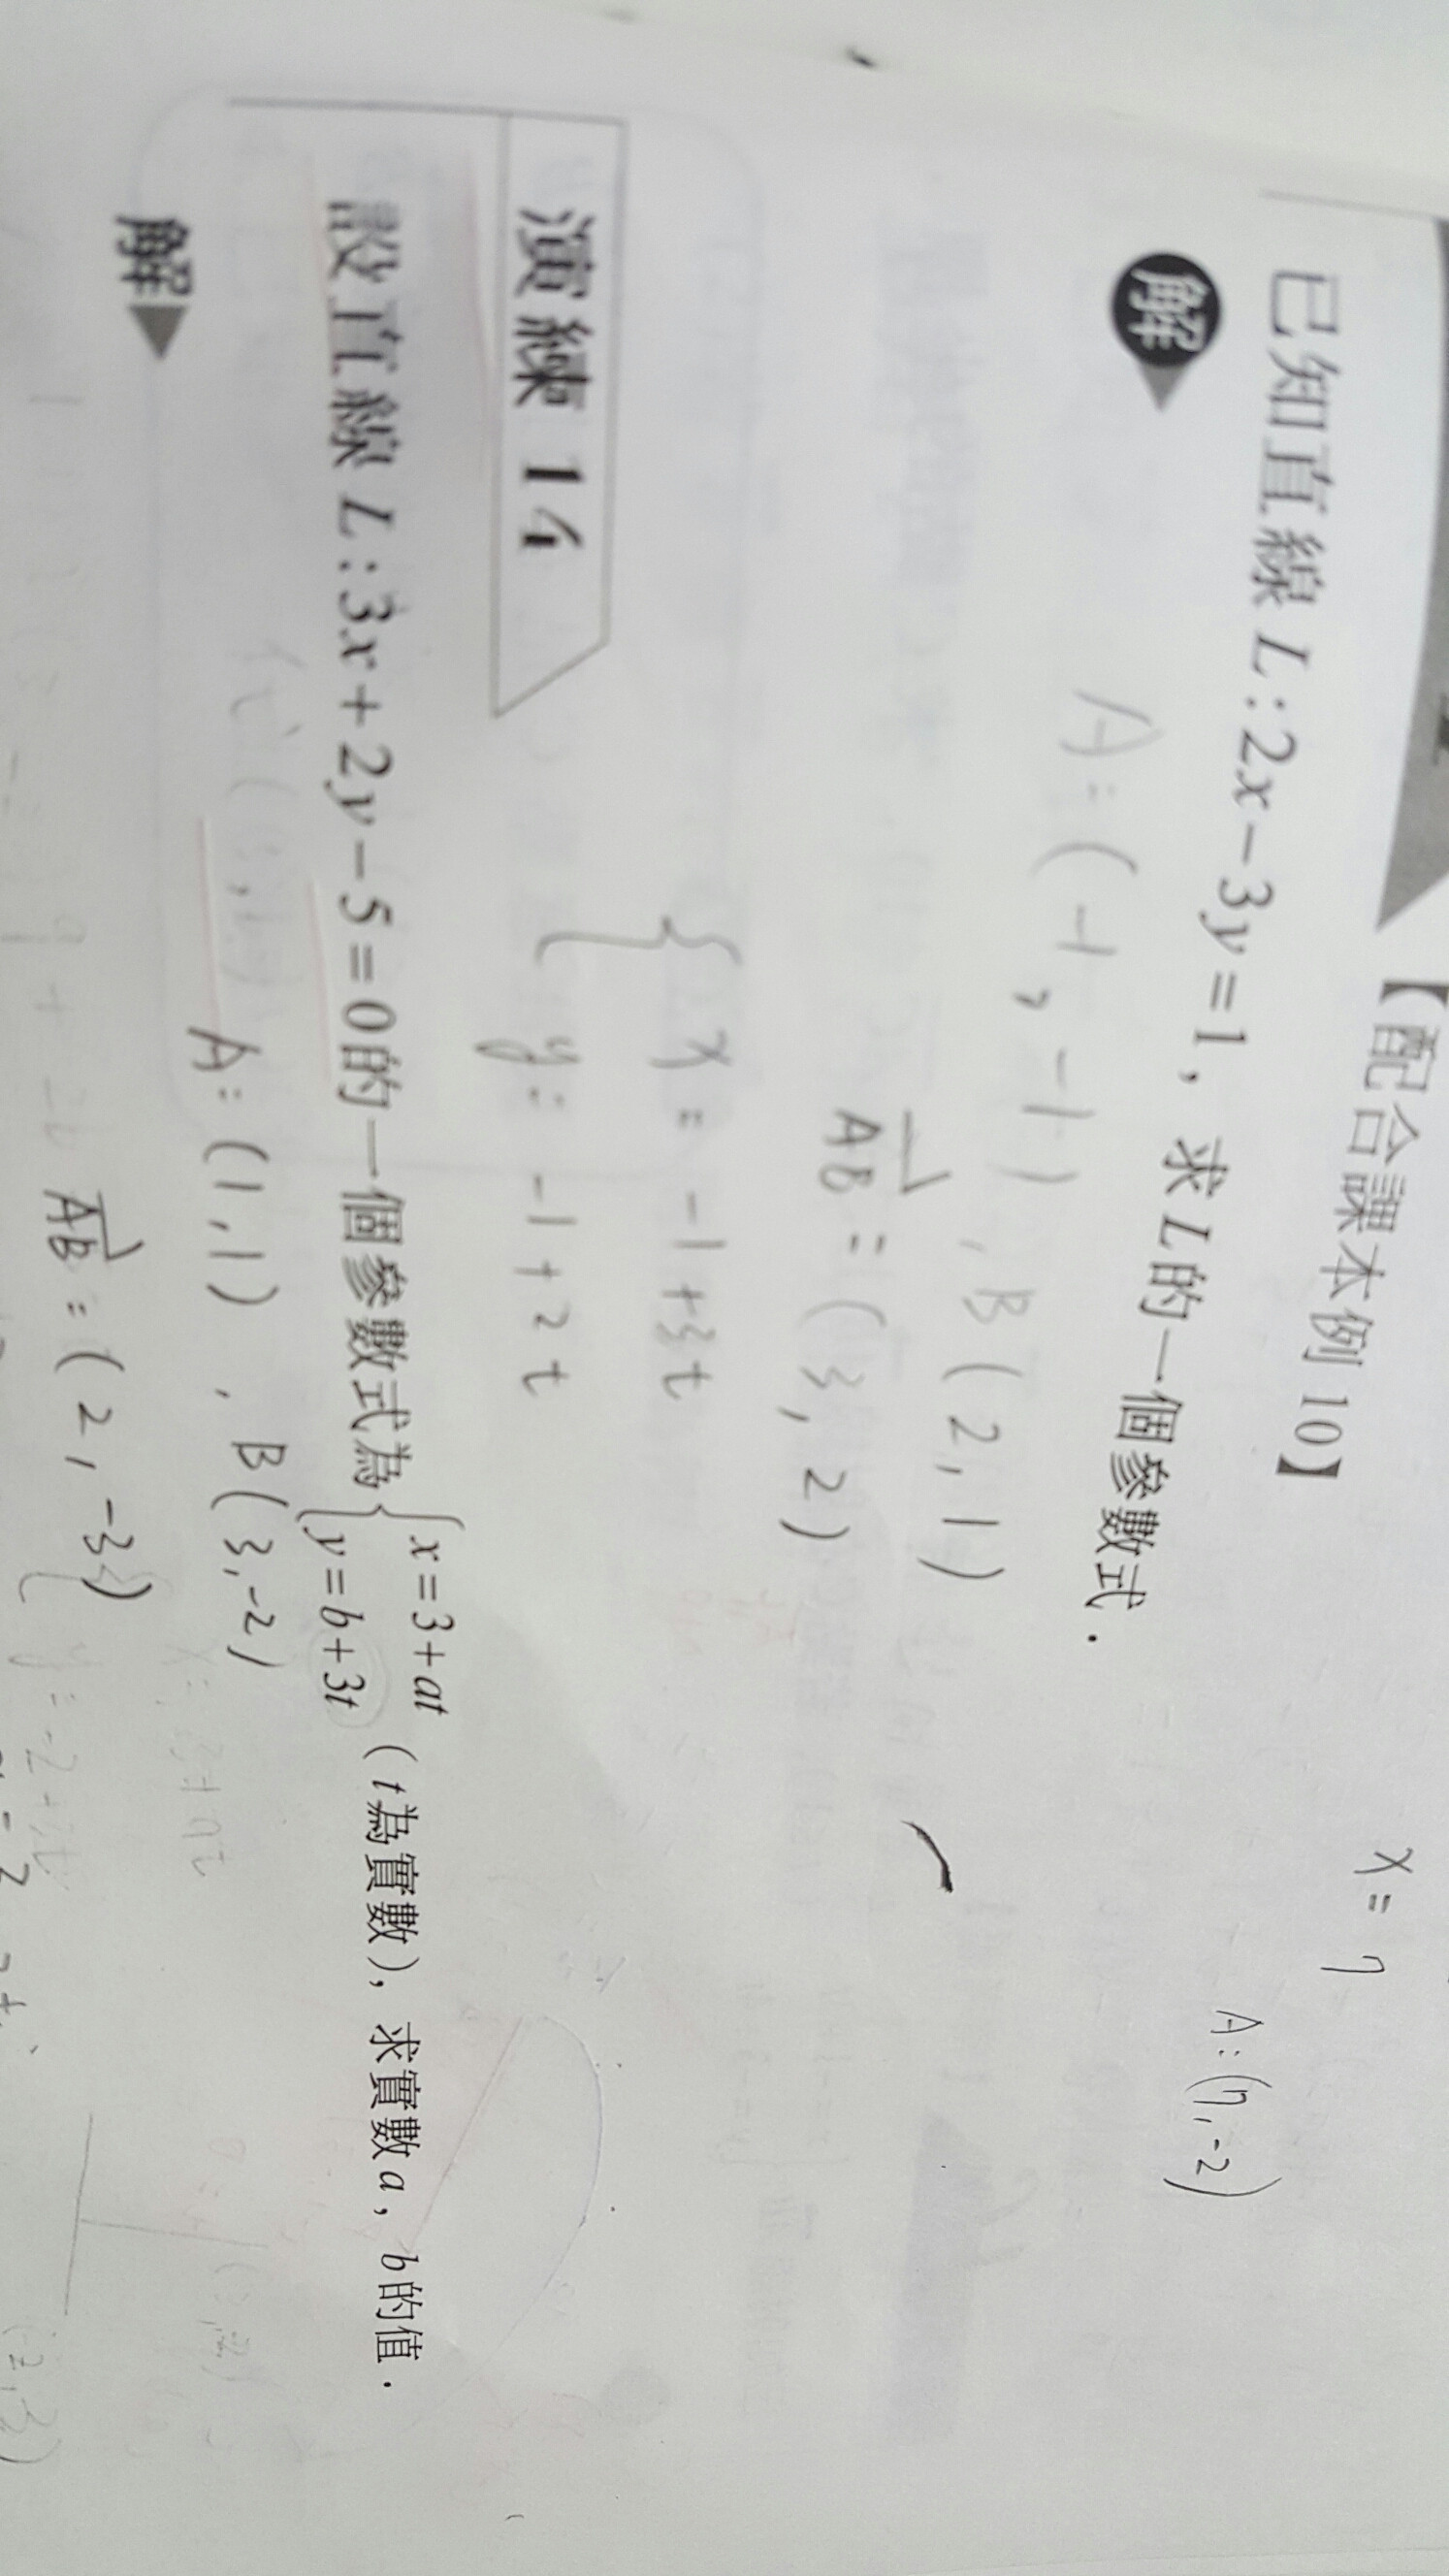 【配合課本例 10】
已知直線 L：2x－3y＝1，求 L 的一個參數式．
x = 7
A:(7,-2)
解
A:(-1,-1), B(2,1)
AB = (3,2)
{ x = -1+3t
y = -1+2t
演練 14
設直線 L：3x＋2y－5＝0的一個參數式為{x＝3＋at
y＝b＋3t（t為實數），求實數a，b的值．
解
A:(1,1), B(3,-2)
x = 3+at
AB = (2,-3)
{ y = -2+3t